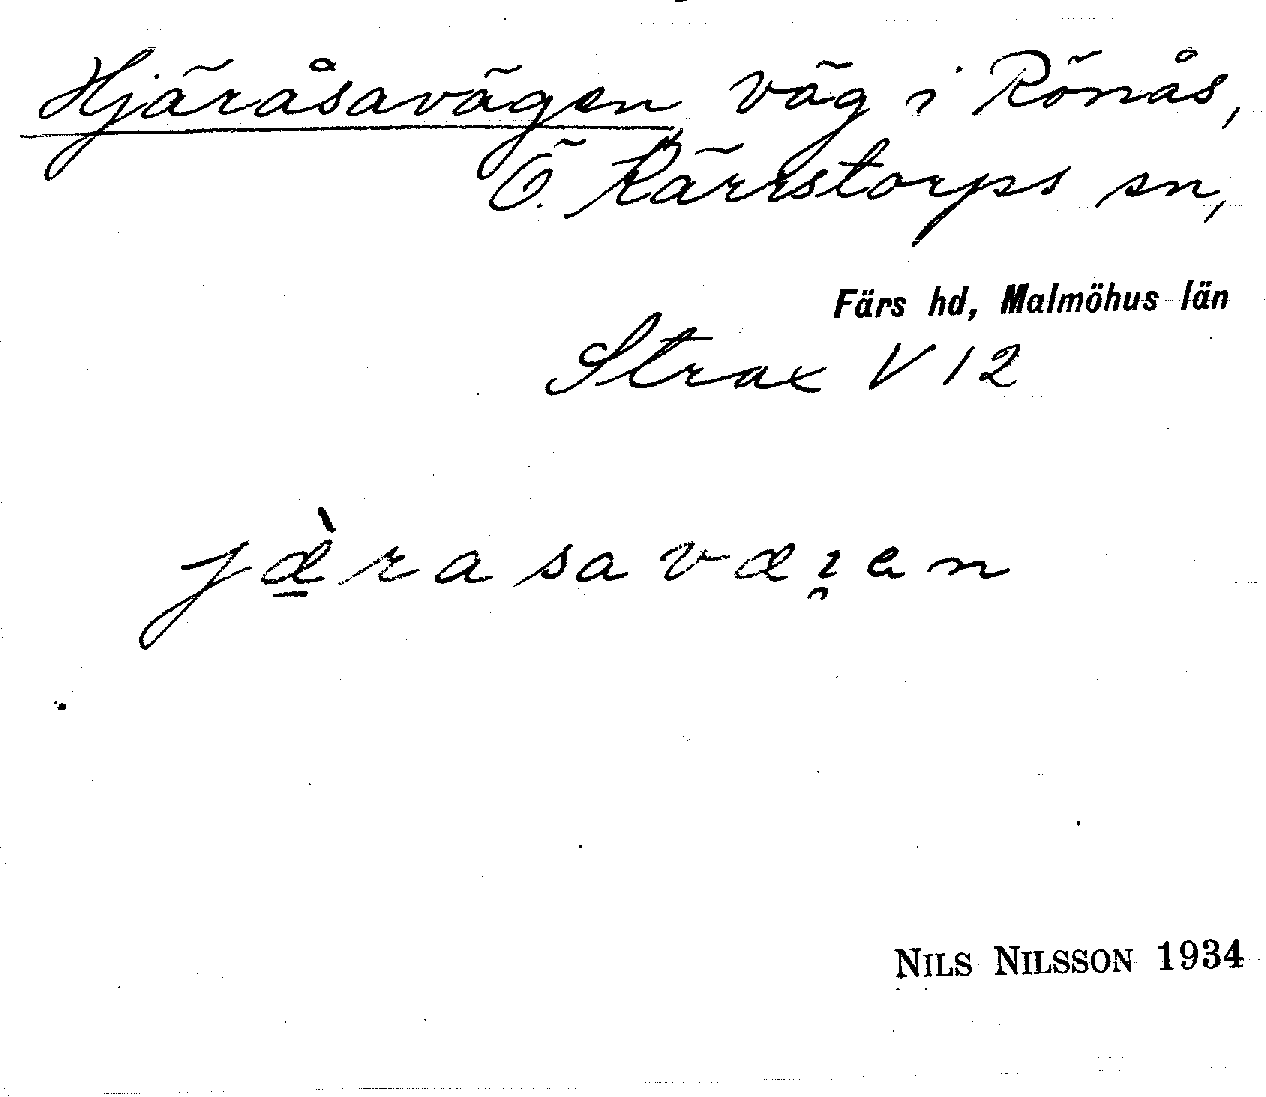 Hjäråsavägen väg i Rönås,
Ö. Kärrstorps sn,
Färs hd, Malmöhus län
Strax V 12
jæ̱̀rasavæɪ̯en
NILS NILSSON 1934